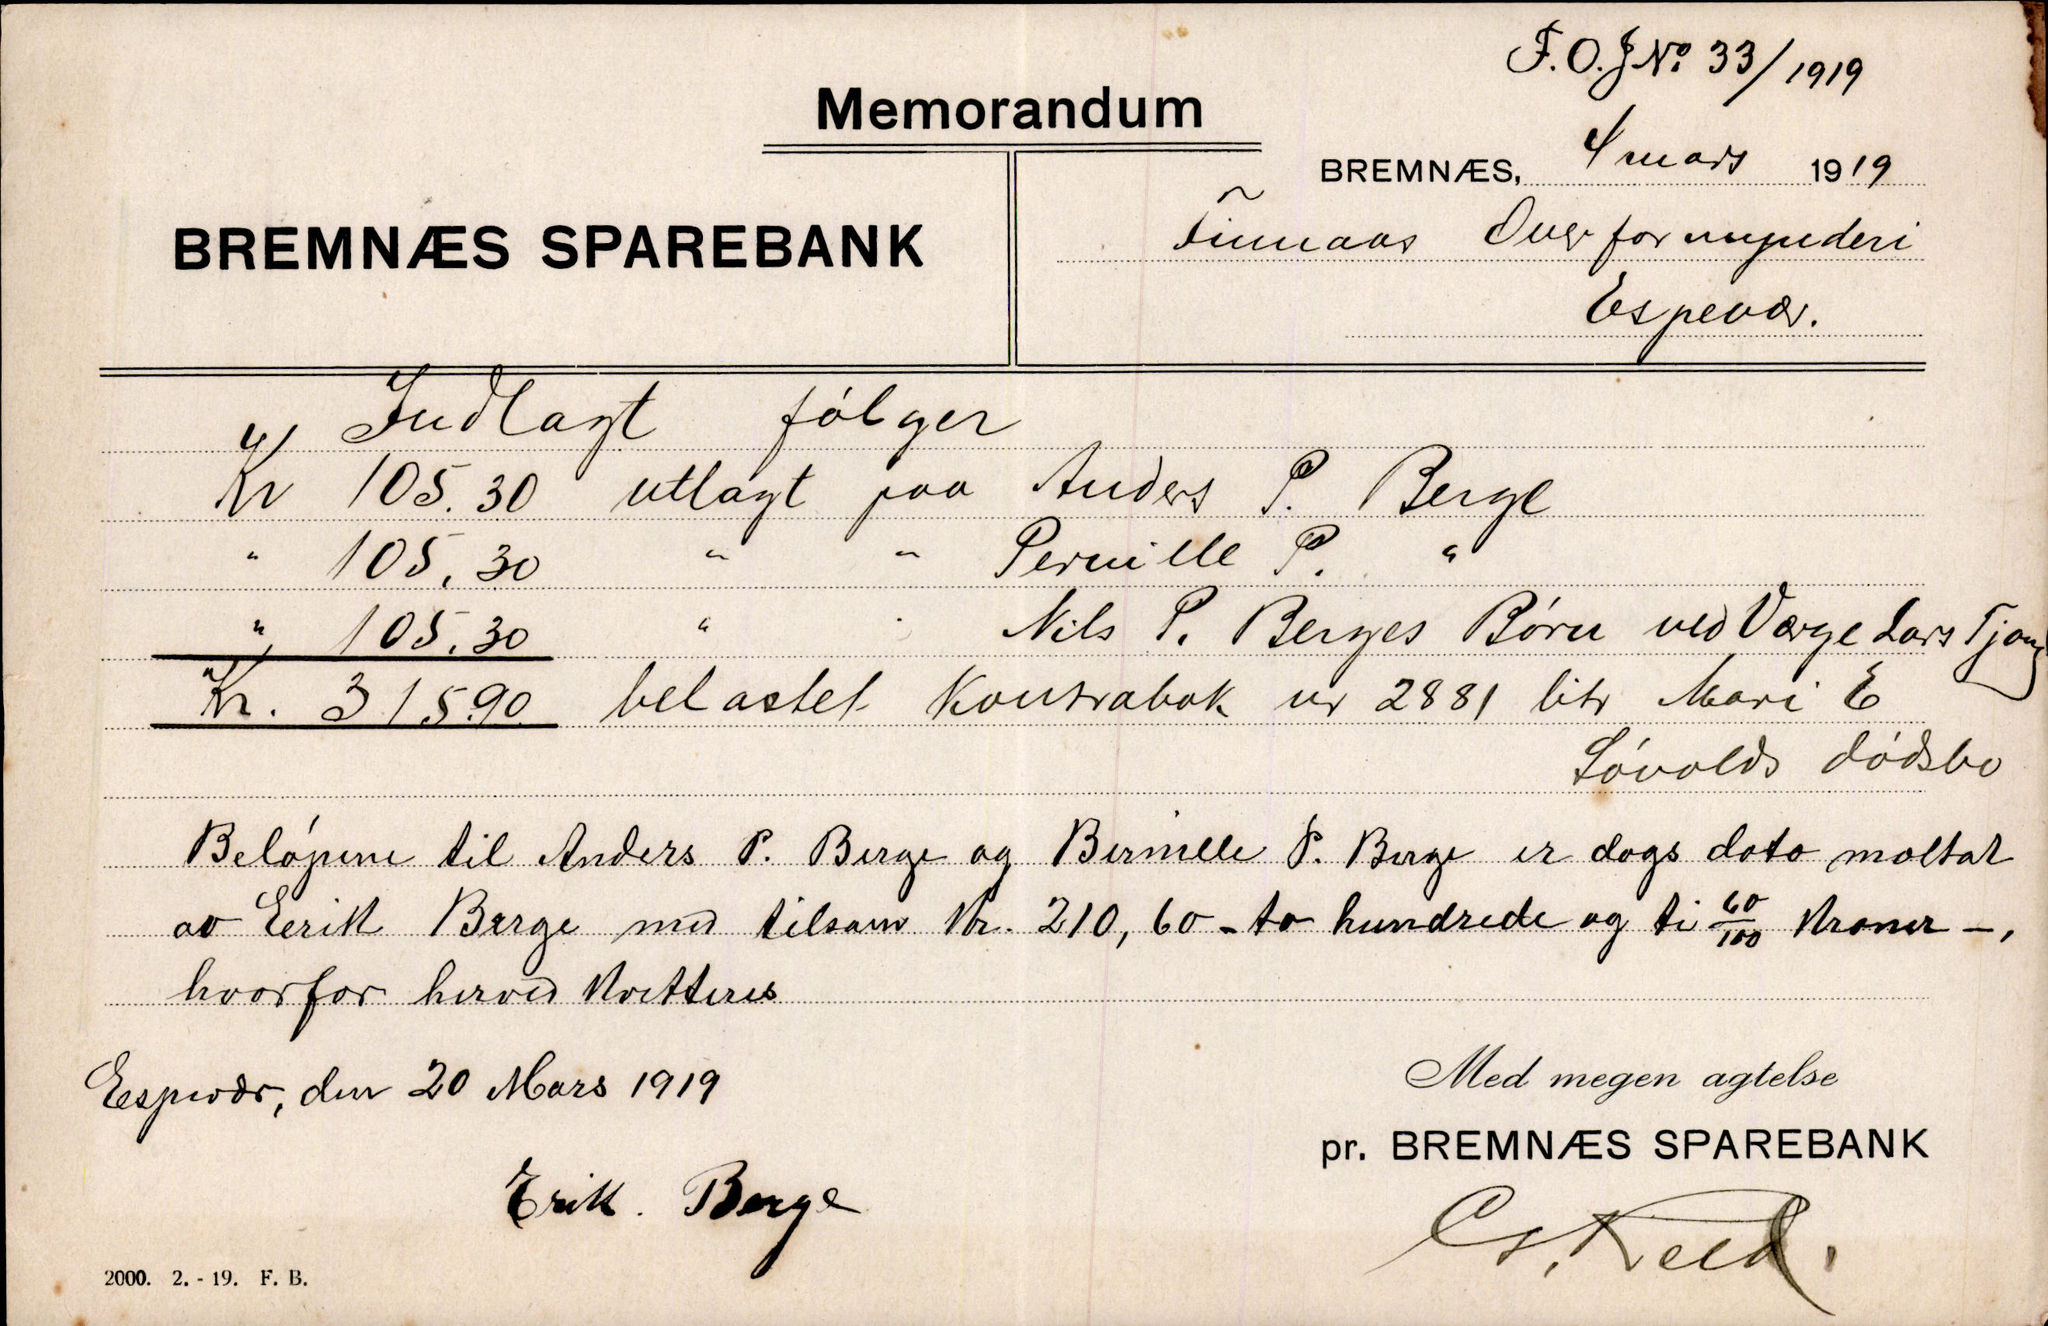 F.O.J No 33/1919
Memorandum
BREMNÆS, 4 mars 1919
BREMNÆS SPAREBANK
Finnaas Overformynderi
Espevær.
Indlagt følger
Kr 105.30 utlagt paa Anders P. Berge
" 105,30 " " Pernille P. "
" 105.30 " " Nils P. Berges Børn ved Værge Lars Tjong
Kr. 315.90 belastet Kontrabok nr 2881 litr Mari E
Løvolds dødsbo
Beløpene til Anders P. Berge og Bernille P. Berge er dags dato mottat
av Eerik Berge med tilsam Kr. 210,60 - to hundrede og ti 60/100 Kroner -,
hvorfor herved kvitteres
Espevær, den 20 Mars 1919
Med megen agtelse
pr. BREMNÆS SPAREBANK
Erik. Berge
2000. 2.-19. F. B.